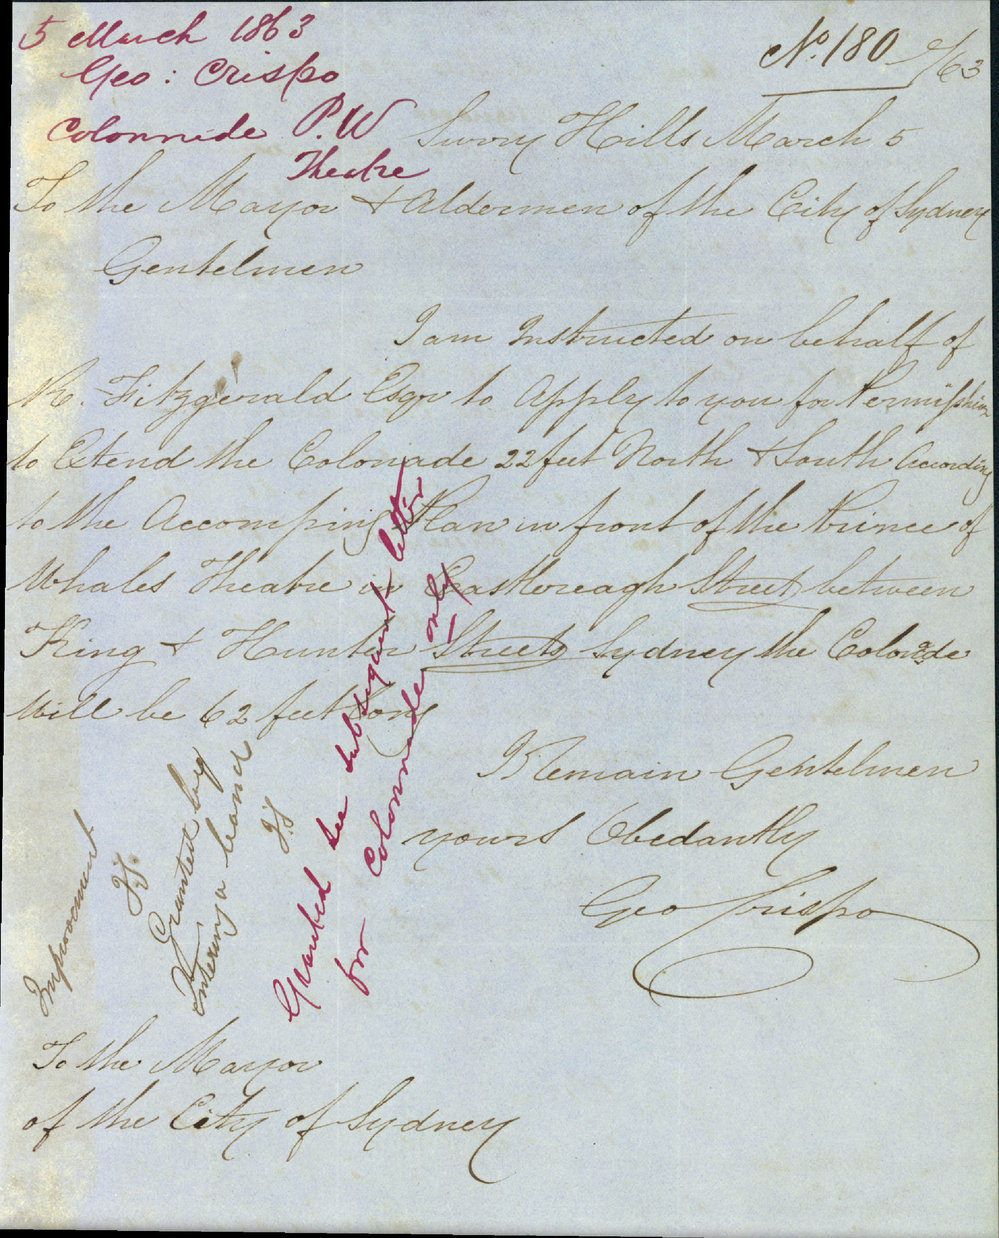 5 March 1863
Geo: Crispo
Colonnade P.W
Theatre
No. 180 /63
Surry Hills March 5
To the Mayor & Aldermen of the City of Sydney
Gentelmen
I am Instructed on behalf of
R. Fitzgerald Esqr to Apply to you for Permission
to Extend the Colonade 22 feet North & South According
to the Accompining Plan in front of the Prince of
Whales Theatre in Castlereagh Street between
King & Hunter Streets Sydney the Colonade
Will be 62 feet Long
I Remain Gentelmen
yours Obedantly
Geo Crispo
Improvement
Granted by
entering a bond
Granted see subsequent letter
for Colonnade only
To the Mayor
of the City of Sydney